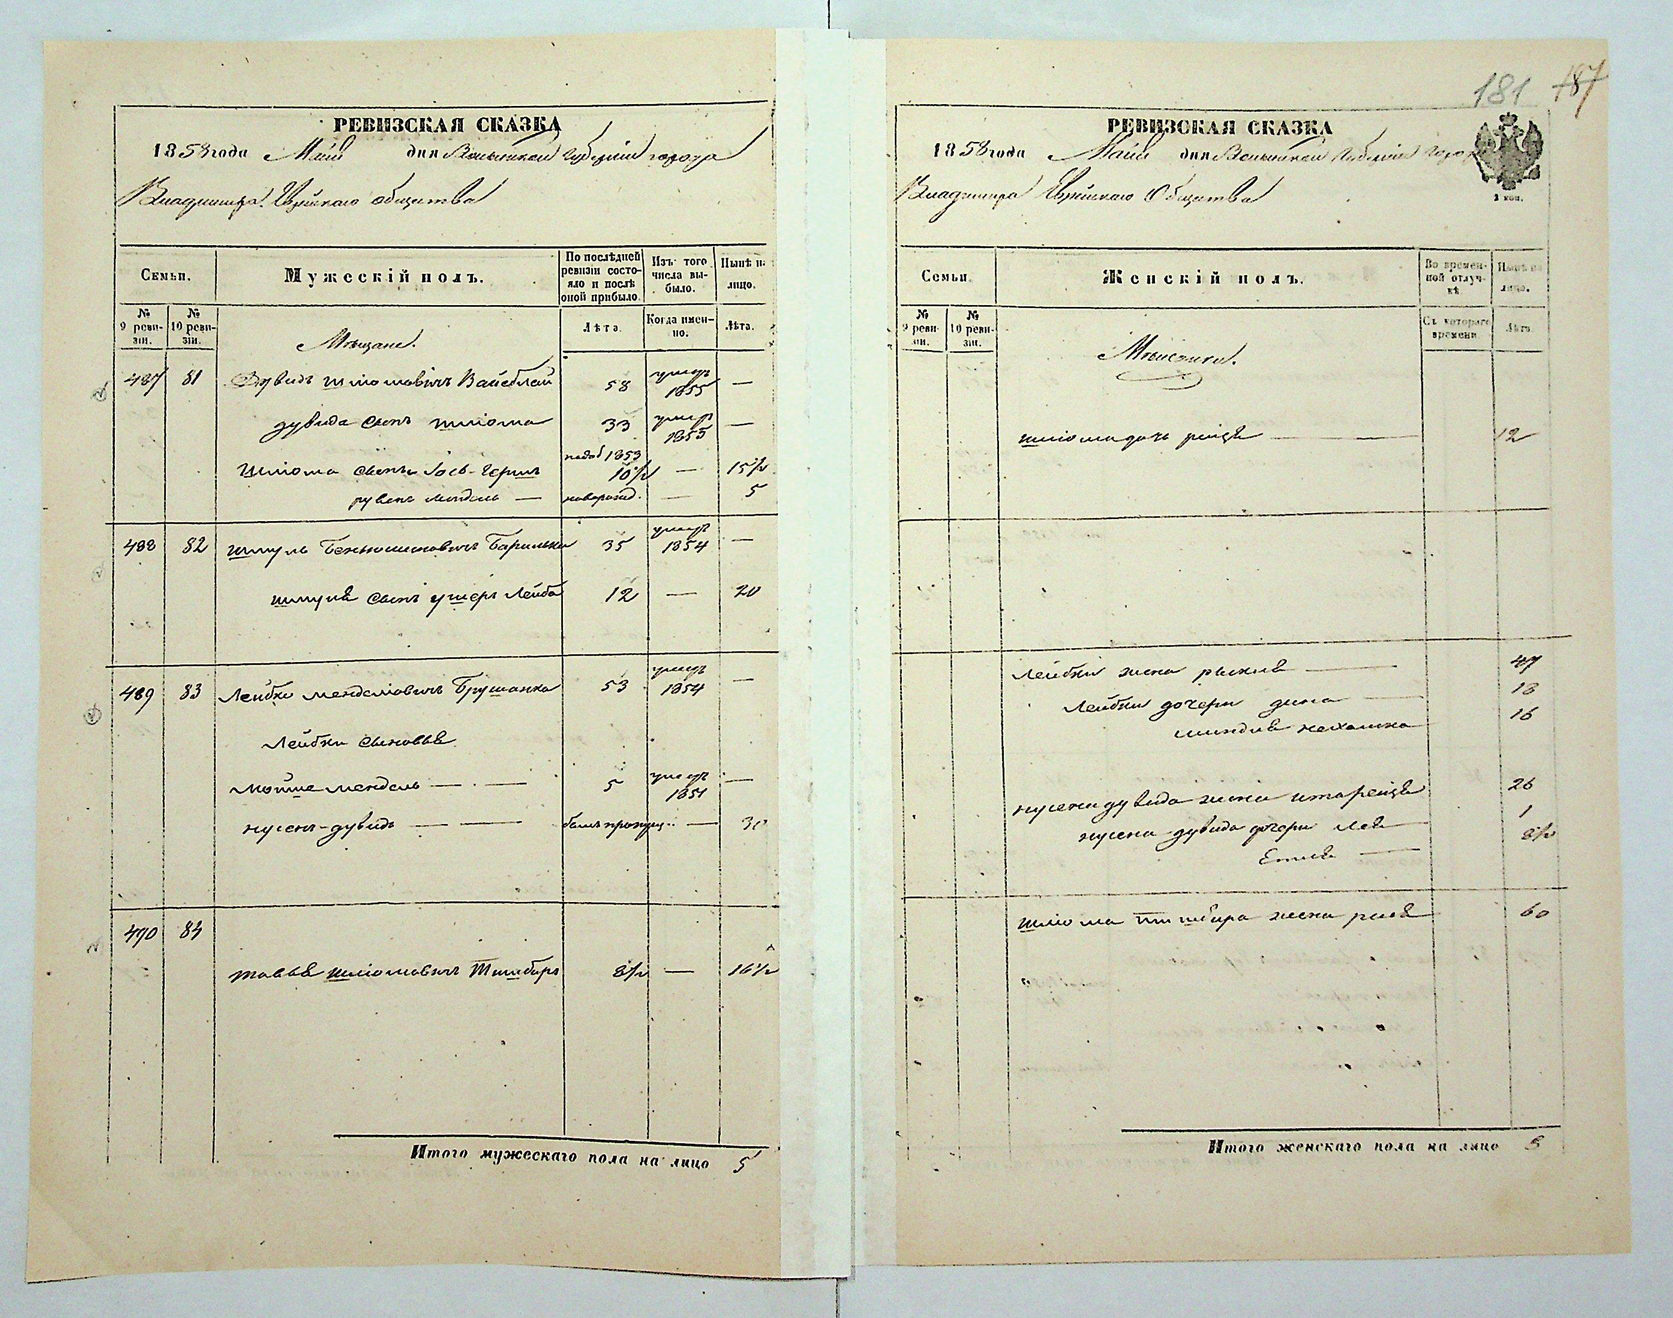 РЕВИЗСКАЯ СКАЗКА
1858 года Мая дня Волынской Губернии города
Владимира Еврейскаго общества
Семьи.
Мужескій полъ.
По послѣдней ревизіи состояло и послѣ оной прибыло.
Изъ того числа выбыло.
Нынѣ на лицо.
№ 9 ревизіи.
№ 10 ревизіи.
Мѣщане.
Лѣта.
Когда именно.
Лѣта.
487 81 Дувидъ Шліомовичъ Вайсблай 58 умеръ 1855 —
Дувида сынъ Шліома 33 умеръ 1855 —
Шліома сыны Іось-Гершъ 10½ — 15½
Рувенъ Мендель — новорожд. — 5
488 82 Шмуль Беньюминовичъ Барилька 35 умеръ 1854 —
Шмуля сынъ Ушеръ Лейба 12 — 20
489 83 Лейбко Менделіовичъ Брушанка 53 умеръ 1854 —
Лейбки сыновья
Мошко Мендель — — 5 умеръ 1851 —
Нусенъ-Дувидъ — — былъ пропущ. —
470 84
Товья Шліомовичъ Тишберъ 8½ — 16½
Итого мужескаго пола на лицо 5
181 187
РЕВИЗСКАЯ СКАЗКА
1858 года Мая дня Волынской Губерніи города
Владимира Еврейскаго Общества
2 коп.
Семьи.
Женскій полъ.
Во временной отлучкѣ
Нынѣ на лицо.
№ 9 ревизіи.
№ 10 ревизіи.
Мѣщанки.
Съ котораго времени
Лѣта.
Шліома дочь Рейзя — — 12
Лейбки жена Рыкля — 47
Лейбки дочери Дина — 18
Нехамка 16
Нусена Дувида жена Итарейзя 26
Нусена Дувида дочери Лея 1
— ½
Шліома Тишбира жена Рися 60
Итого женскаго пола на лицо 8